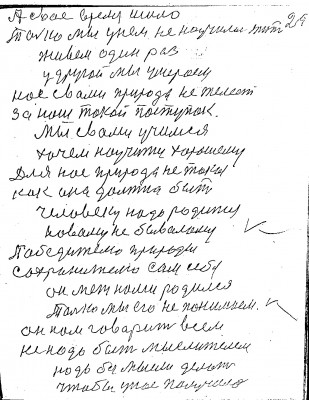 А свое время шло 29
Только мы у нем не научились жит
живем один раз
у другой мы умераем
нас свами природа не жалеет
за наш такой поступок.
Мы свами учимся
хочем научитц хорошему
Для нас природа не такая
как она должна быт
человеку надо родитц
новаму не бывалому
Победителю природы
сохранителю сам себу
он меж нами родился
Толко мы его не понимаем.
он нам говорит всем
не надо быт мыслителем
надо бы мыли делат
чтобы у нас получило